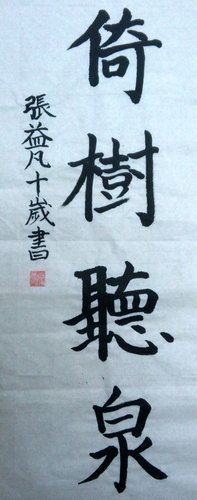 倚樹聽泉
張益凡十歲書